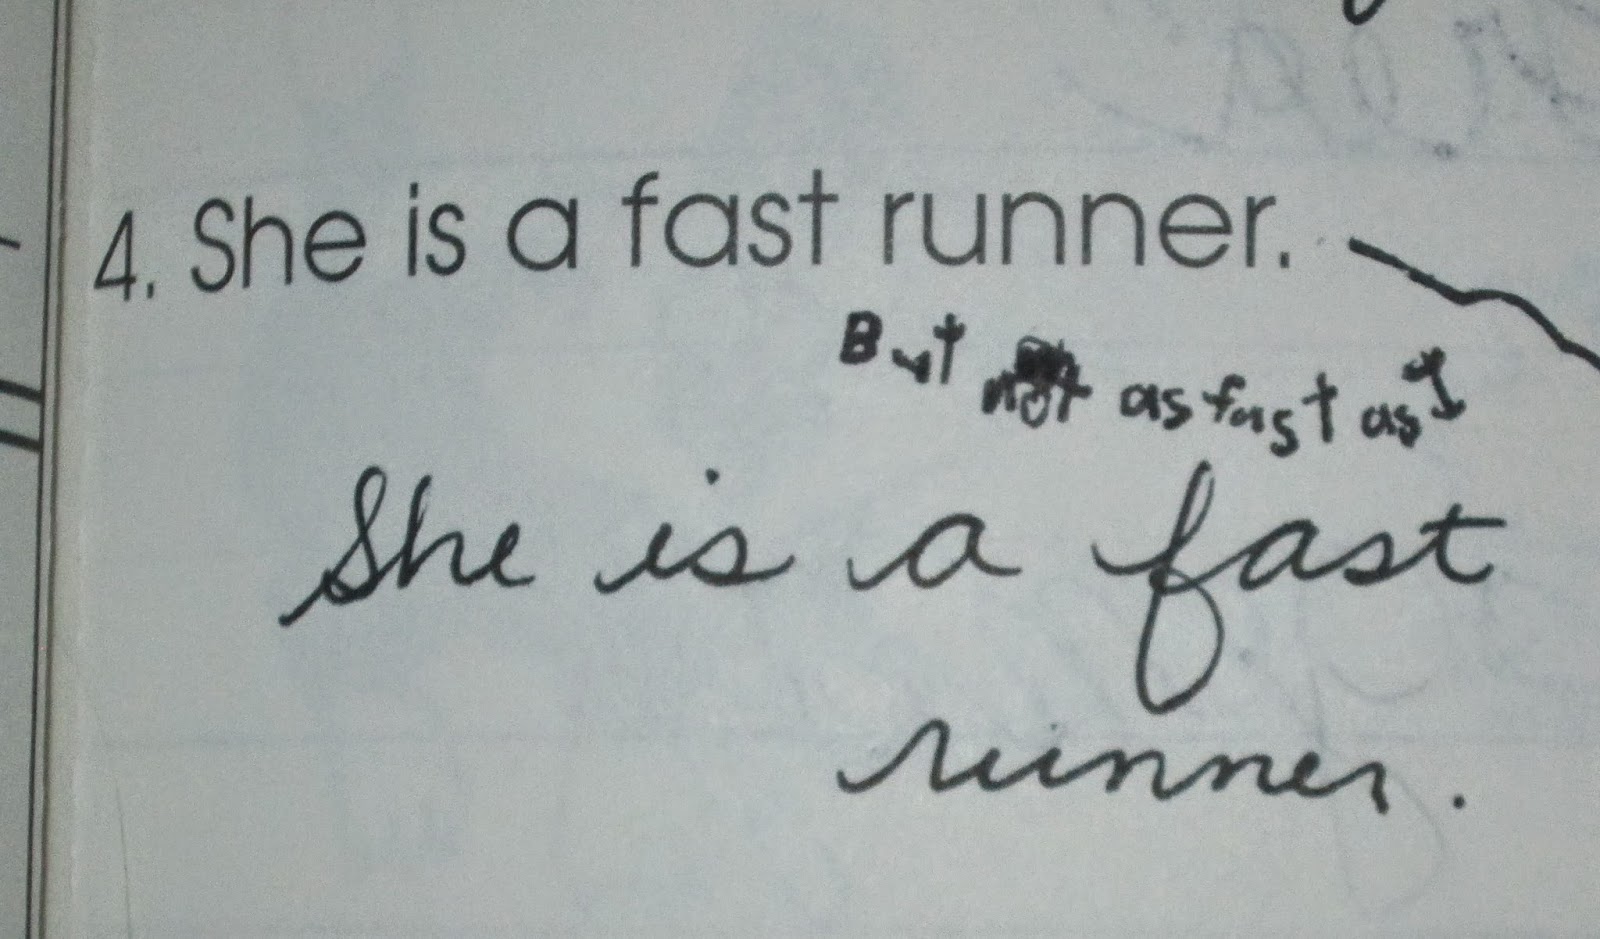 4. She is a fast runner.
But not as fast as I
She is a fast
runner.